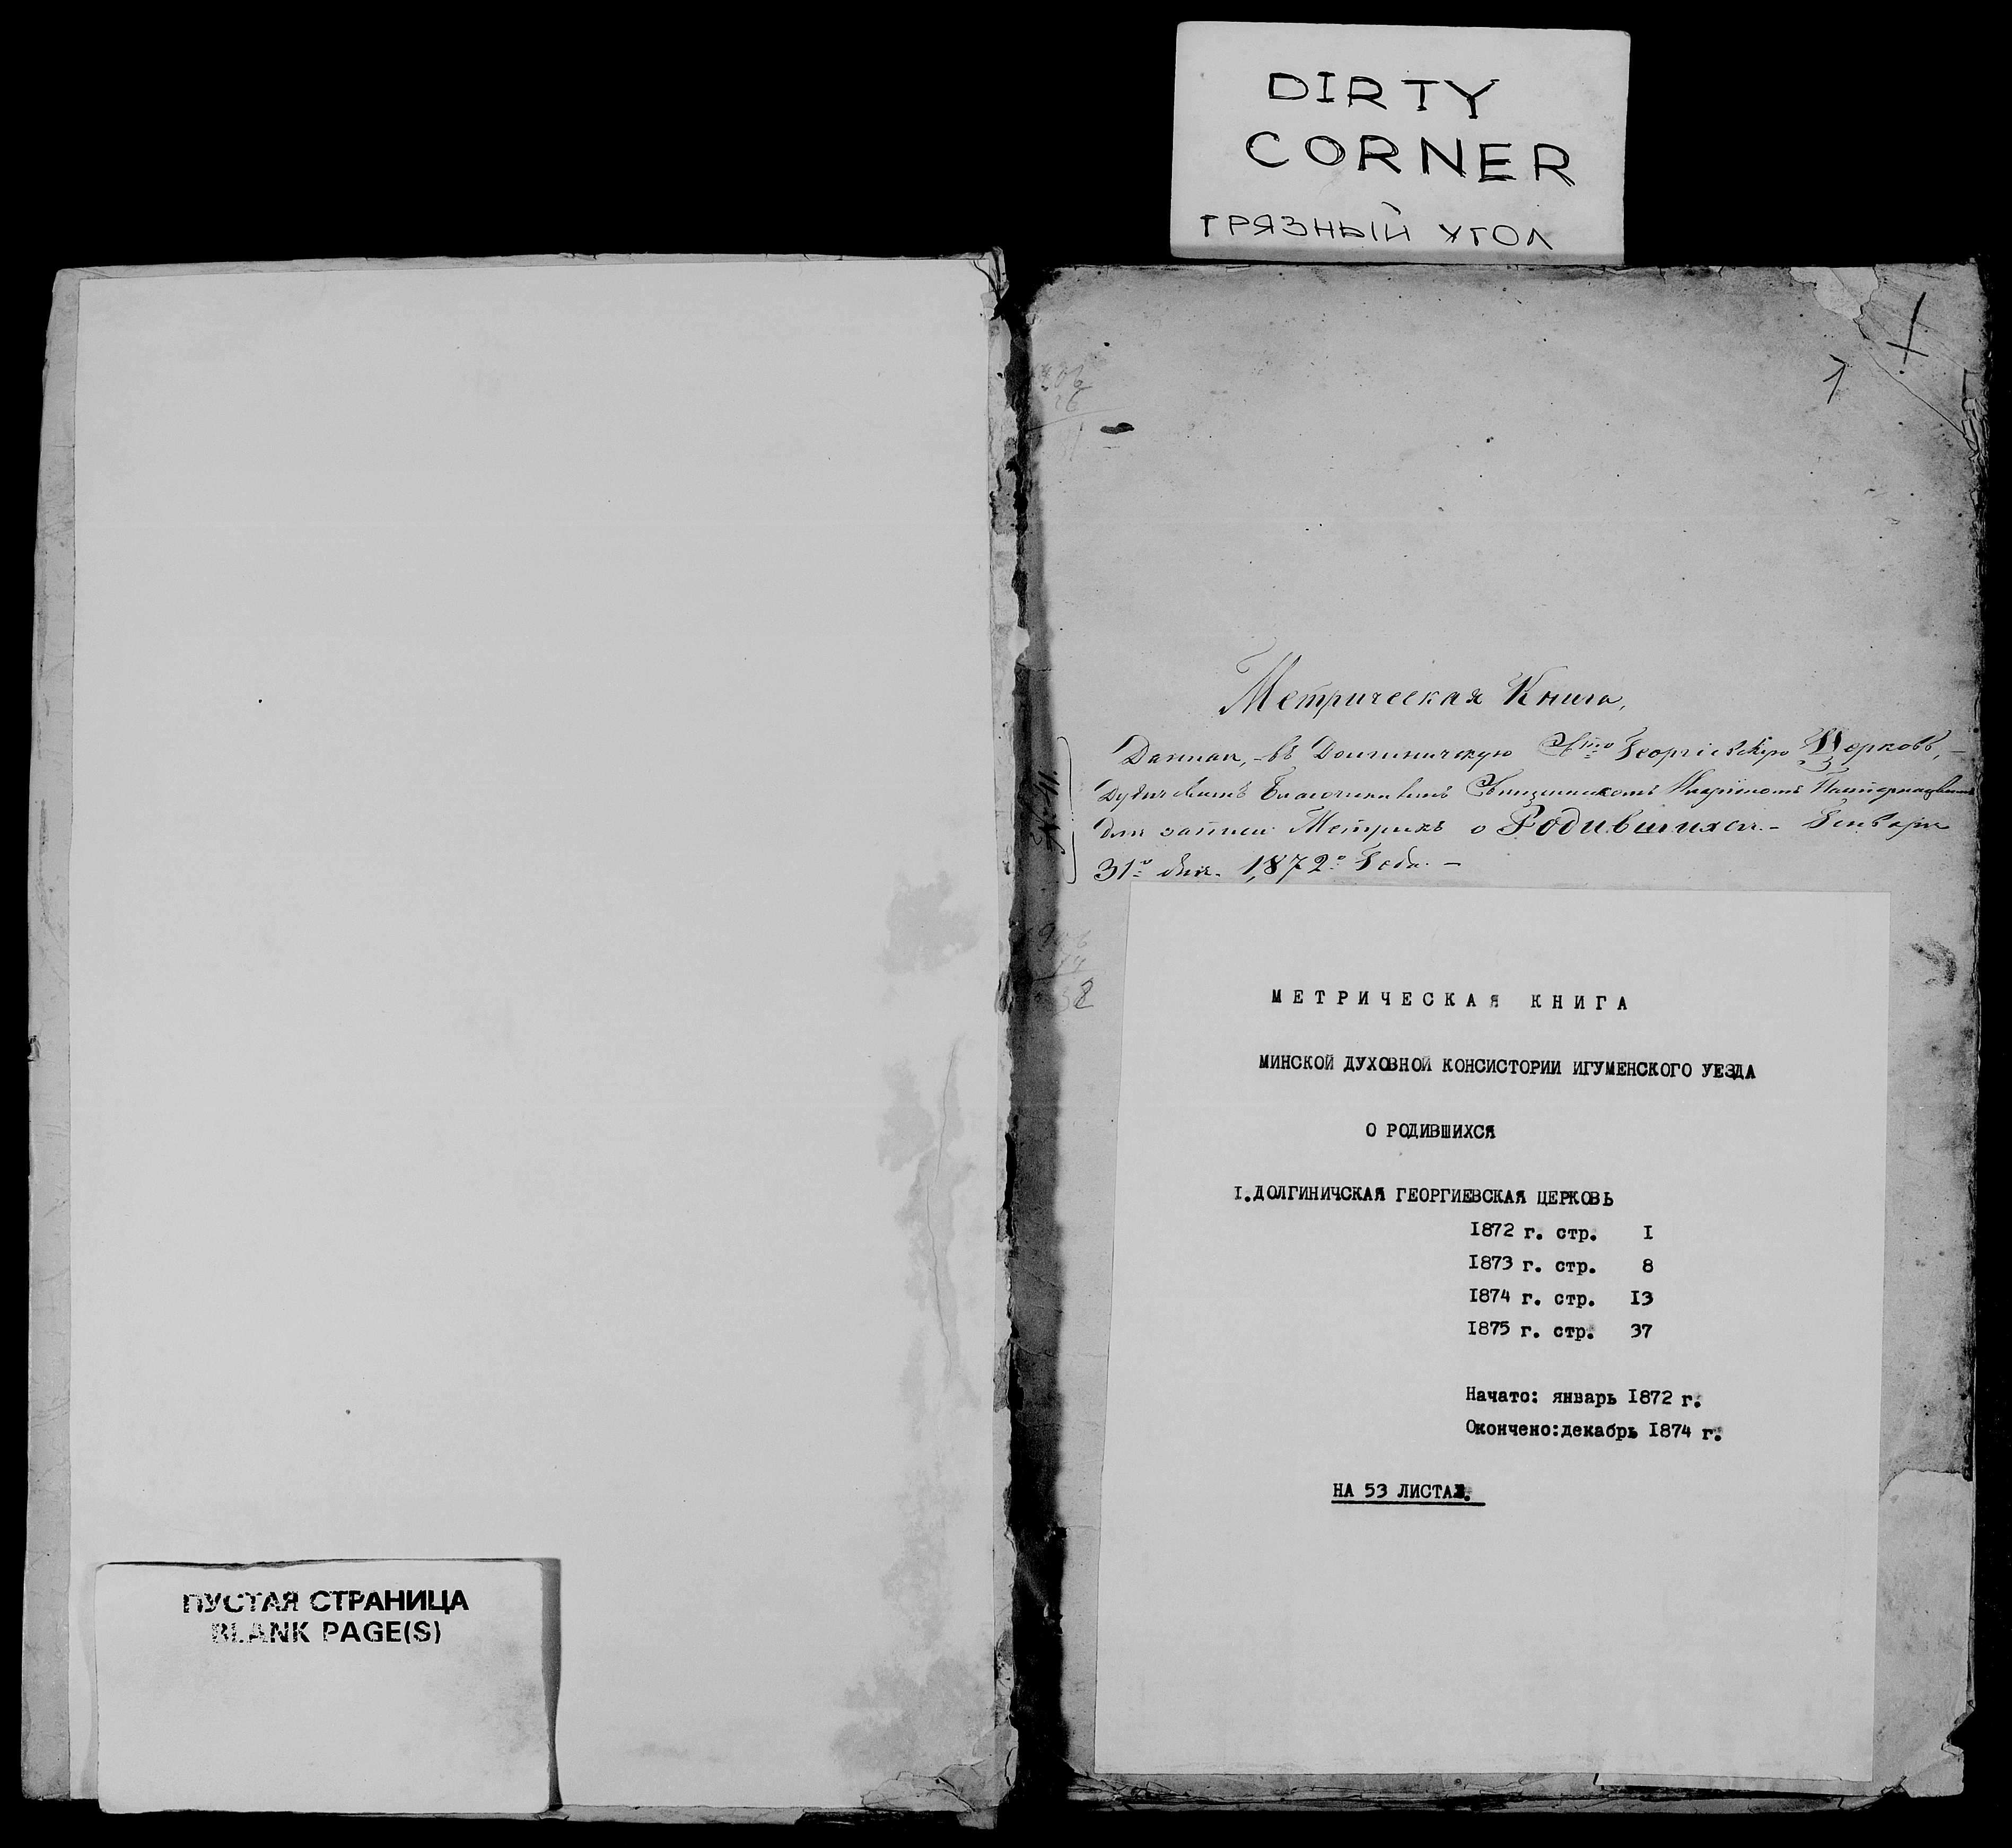 DIRTY
CORNER
ГРЯЗНЫЙ УГОЛ
1
Метрическая Книга,
Данная, въ Долгиничскую Свто Георгіевскую Церковь,
Дудичскимъ Благочиннымъ Священникомъ
для записи Метрикъ о Родившихся. – Генваря
31го дня. 1872го Года. –
№ 41.
МЕТРИЧЕСКАЯ КНИГА
МИНСКОЙ ДУХОВНОЙ КОНСИСТОРИИ ИГУМЕНСКОГО УЕЗДА
О РОДИВШИХСЯ
I. ДОЛГИНИЧСКАЯ ГЕОРГИЕВСКАЯ ЦЕРКОВЬ
I872 г. стр. I
I873 г. стр. 8
I874 г. стр. I3
I875 г. стр. 37
Начато: январь I872 г.
Окончено: декабрь I874 г.
НА 53 ЛИСТАХ.
ПУСТАЯ СТРАНИЦА
BLANK PAGE(S)